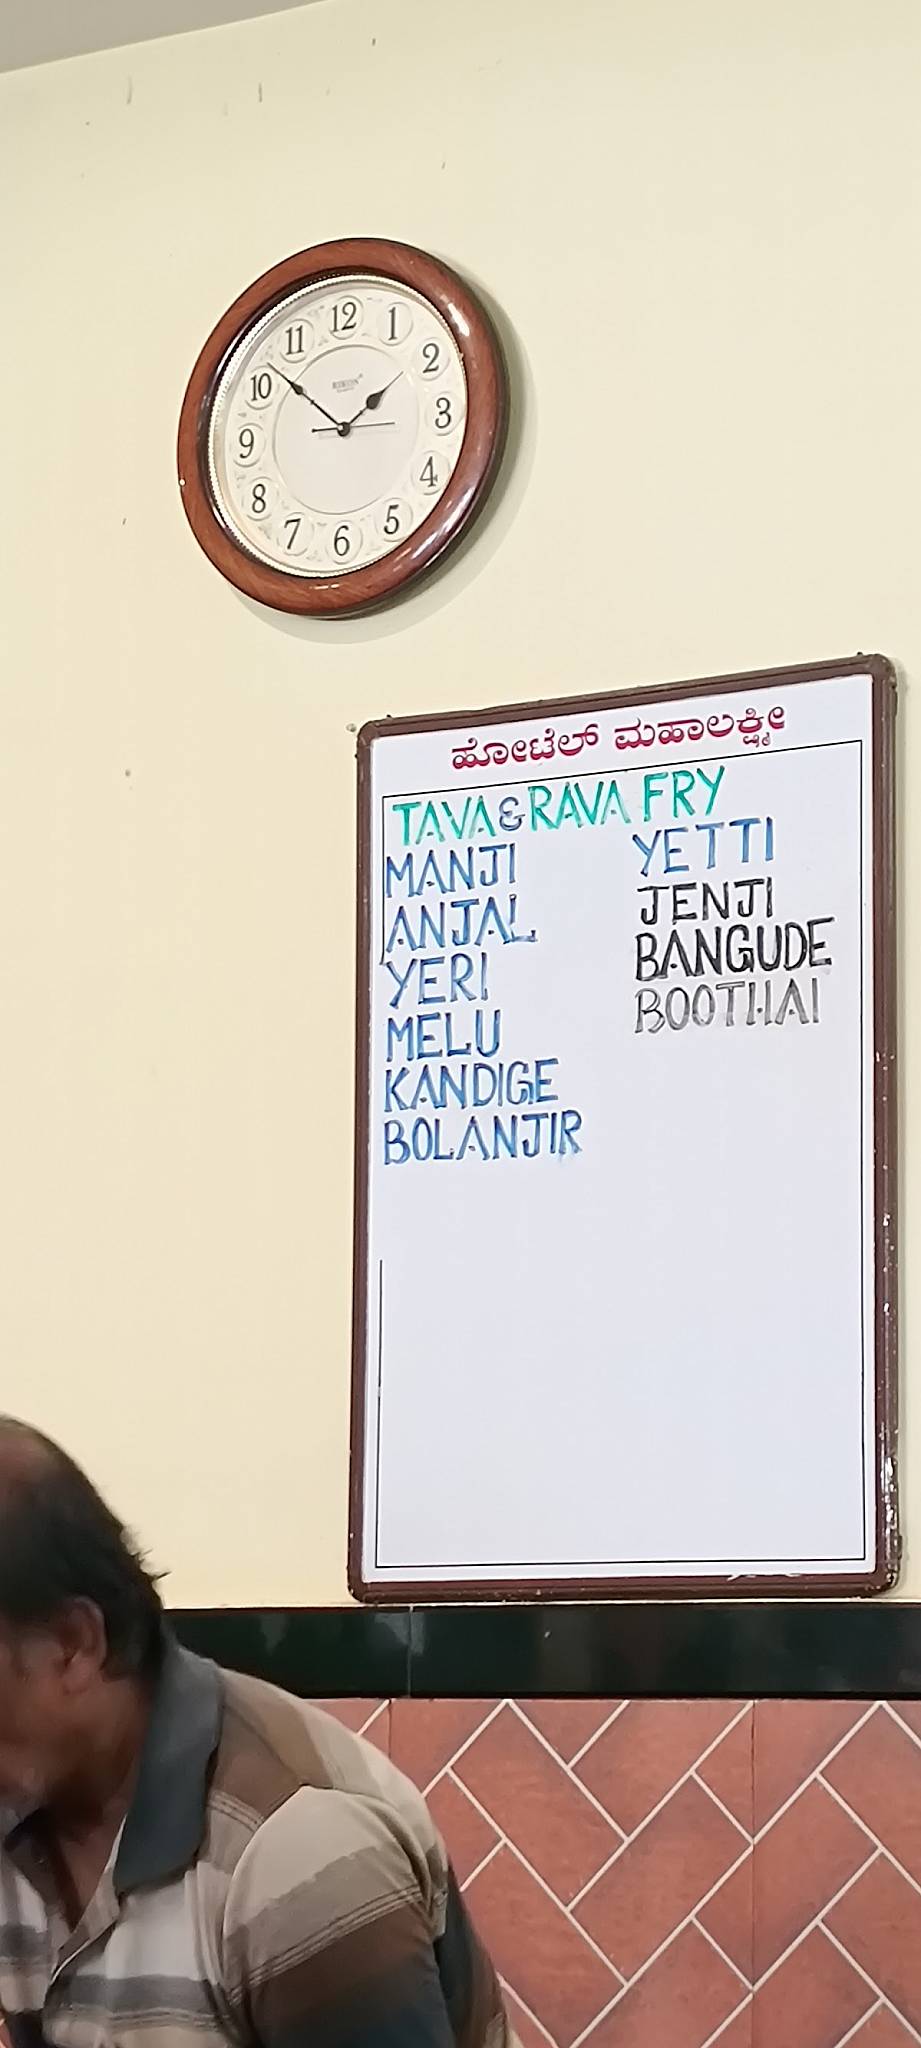 12
1
2
3
4
5
6
7
8
9
10
11
ಹೋಟೆಲ್ ಮಹಾಲಕ್ಷ್ಮೀ
TAVA & RAVA FRY
MANJI
ANJAL
YERI
MELU
KANDIGE
BOLANJIR
YETTI
JENJI
BANGUDE
BOOTHAI